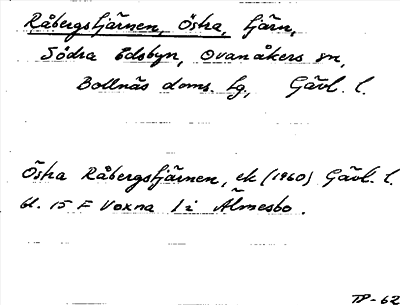 Råbergstjärnen, Östra, tjärn,
Södra Edsbyn, Ovanåkers sn,
Bollnäs doms. lg, Gävl. l.
Östra Råbergstjärnen, ek (1960) Gävl. l.
bl. 15 F Voxna 1 i Älmesbo.
TP-62